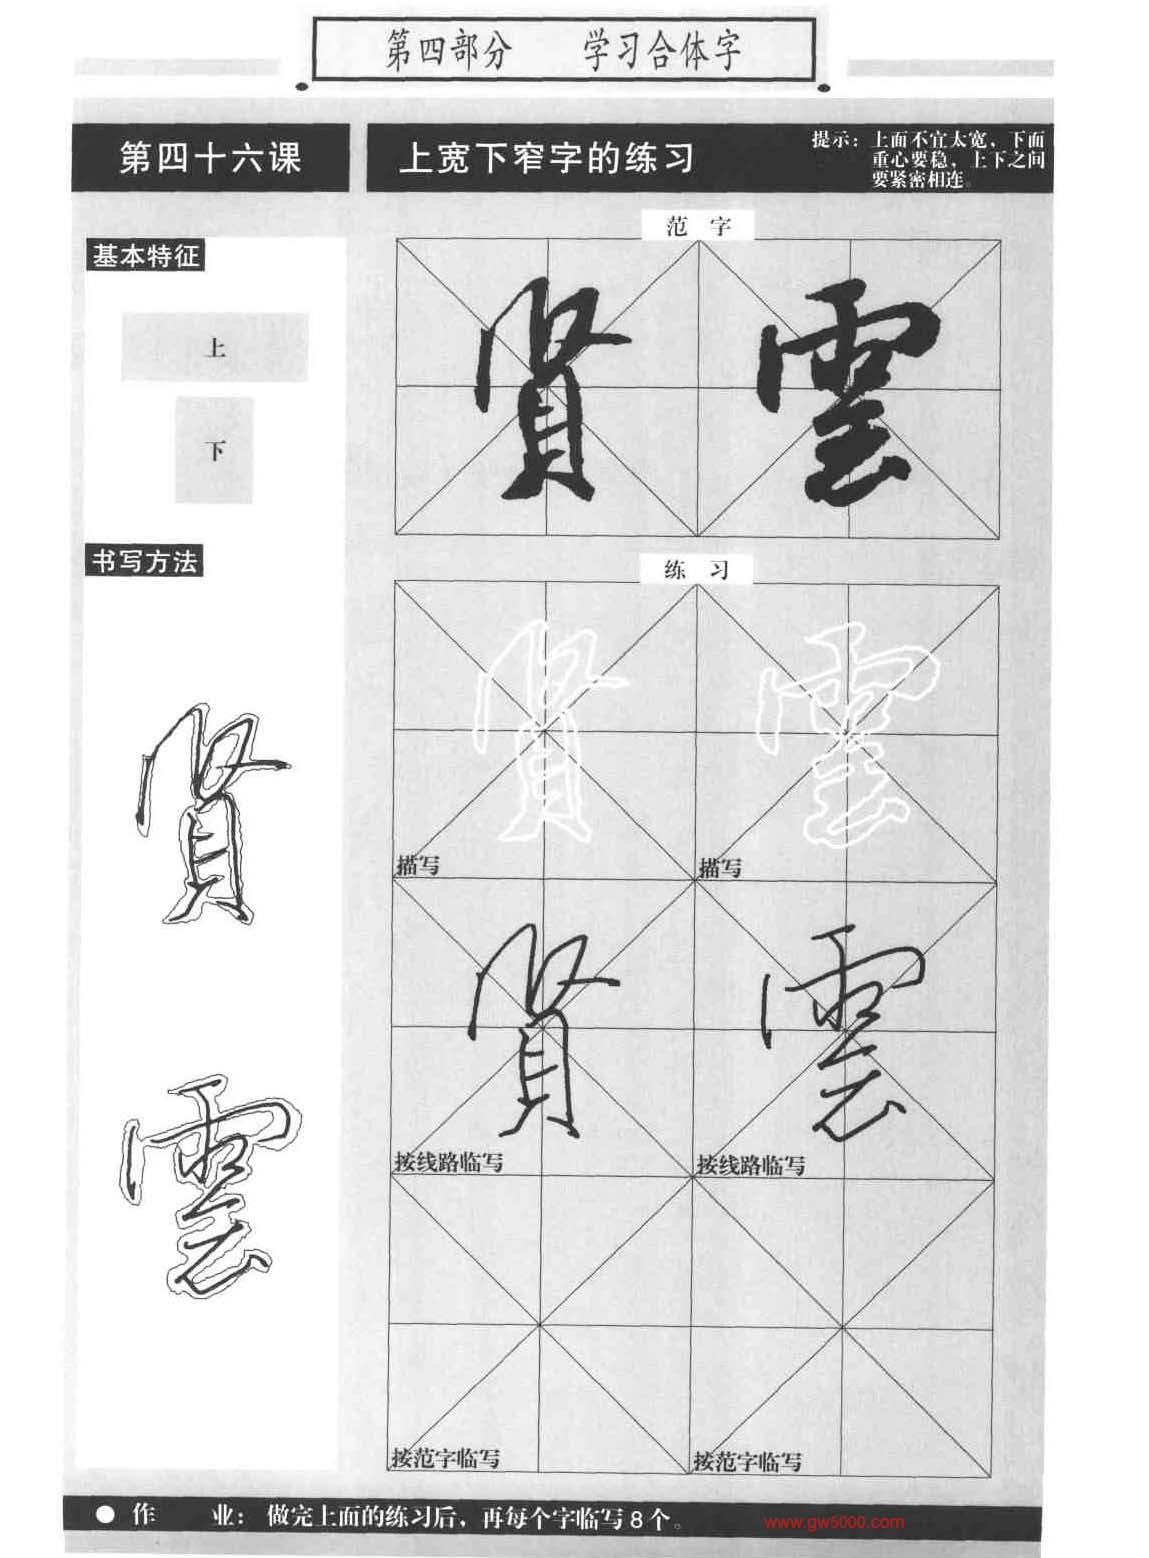 第四部分 学习合体字
第四十六课
上宽下窄字的练习
提示：上面不宜太宽，下面
重心要稳，上下之间
要紧密相连。
基本特征
上
下
书写方法
賢
雲
范 字
賢 雲
练 习
賢 雲
描写 描写
賢 雲
按线路临写 按线路临写
按范字临写 按范字临写
● 作 业：做完上面的练习后，再每个字临写8个。
www.gw5000.com